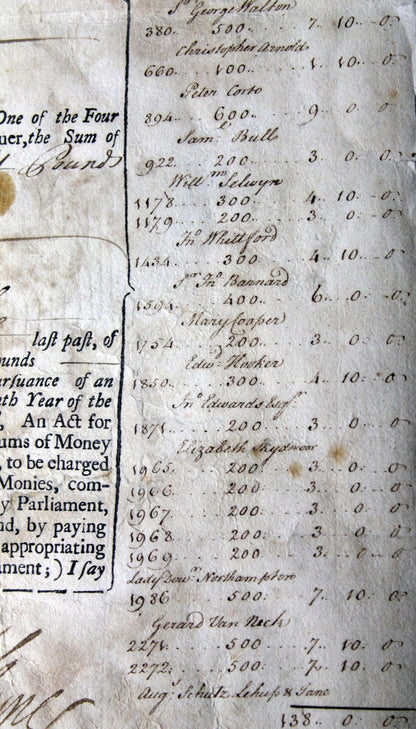 One of the Four
uer, the Sum of
Pounds
last past, of
ounds
ursuance of an
nth Year of the
, An Act for
ums of Money
, to be charged
Monies, com-
y Parliament,
nd, by paying
appropriating
ament;) I say
Sr George Walton
380 . . . 500 . . . 7 . 10 . . 0
Christopher Arnold
660 . . . 100 . . . 1 . 10 . . 0
Peter Corbo
894 . . . 600 . . . 9 . 0 . . 0
Saml. Bull
922 . . . 200 . . . 3 . 0 . . 0
Willm Selwyn
1178 . . . 300 . . . 4 . 10 . . 0
1179 . . . 200 . . . 3 . 0 . . 0
Jno. Whittford
1434 . . . 300 . . . 4 . 10 . . 0
Sr Jno. Barnard
1594 . . . 400 . . . 6 . 0 . . 0
Mary Cooper
1754 . . . 200 . . . 3 . 0 . . 0
Edwd. Hooker
1850 . . . 300 . . . 4 . 10 . . 0
Jno. Edwards Esqr.
1871 . . . 200 . . . 3 . 0 . . 0
Elizabeth Skydmoor
1965 . . . 200 . . . 3 . 0 . . 0
1966 . . . 200 . . . 3 . 0 . . 0
1967 . . . 200 . . . 3 . 0 . . 0
1968 . . . 200 . . . 3 . 0 . . 0
1969 . . . 200 . . . 3 . 0 . . 0
Lady Dowr. Northampton
1986 . . . 500 . . . 7 . 10 . . 0
Gerard Van Neck
2271 . . . 500 . . . 7 . 10 . . 0
2272 . . . 500 . . . 7 . 10 . . 0
Augs. Schutz Lehup & Jane
138 . . 0 . . 0